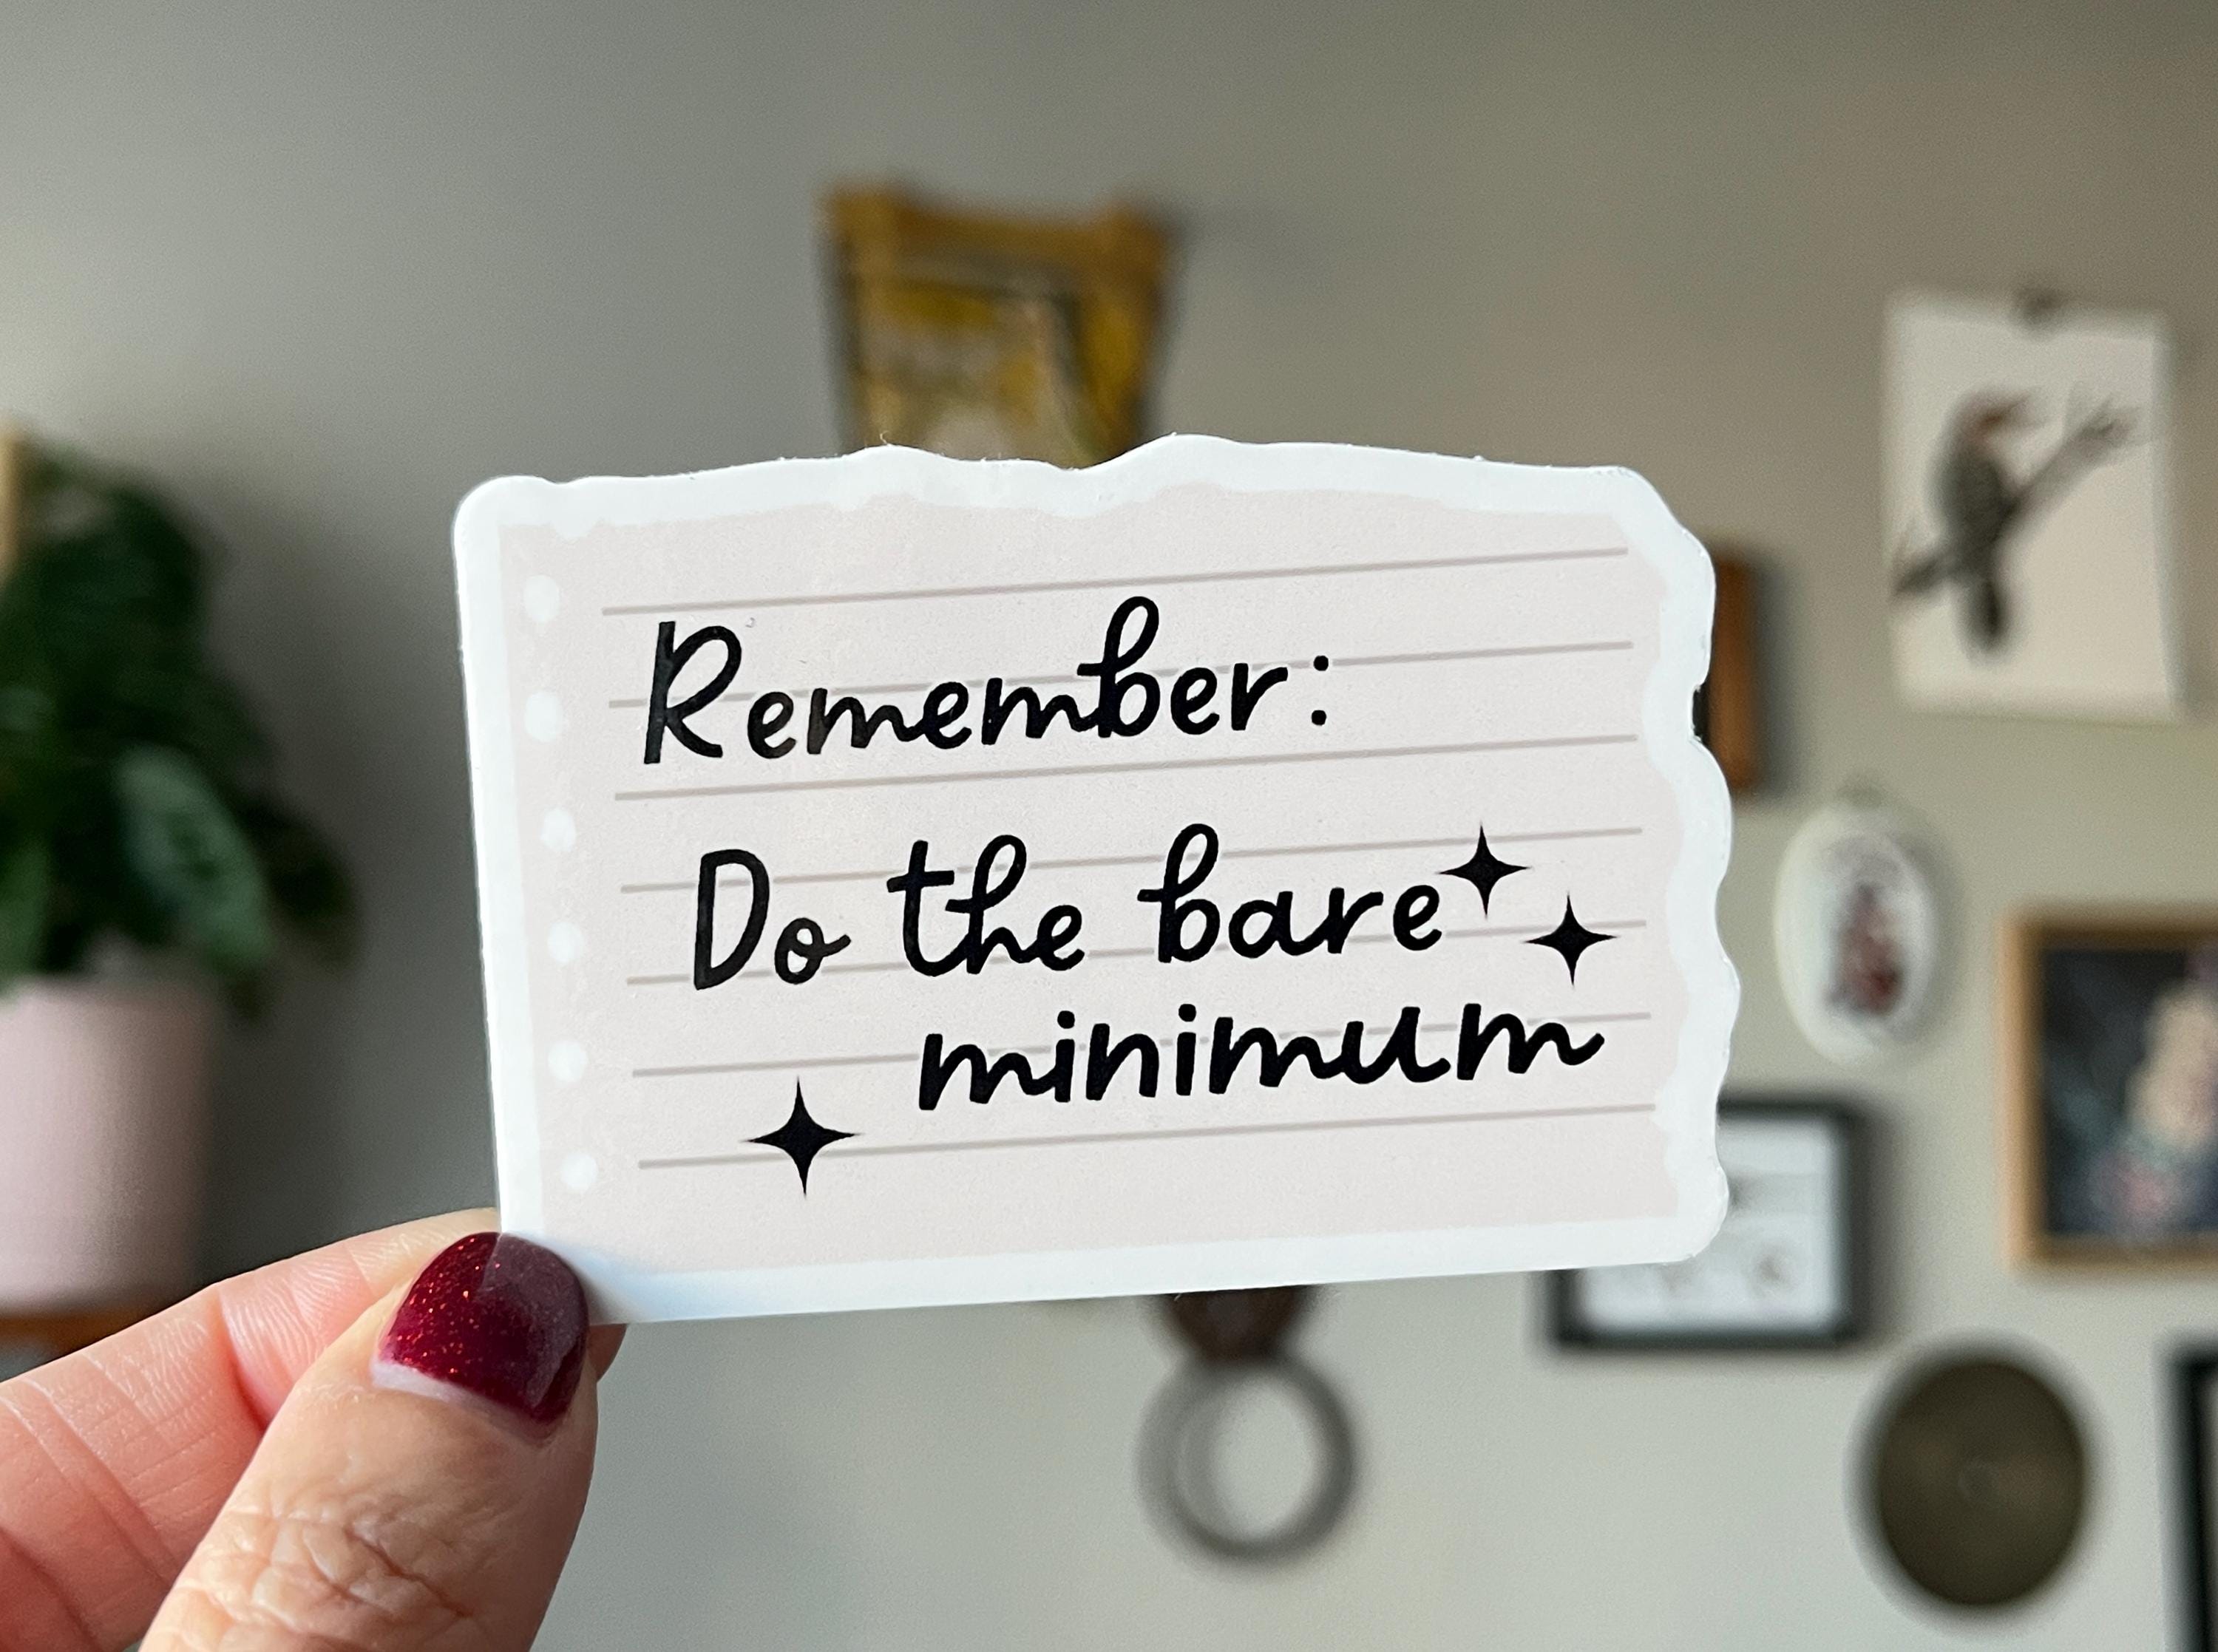 Remember:
Do the bare
minimum